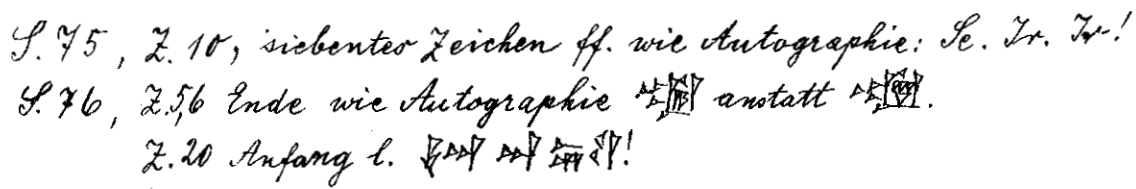 S. 75, Z. 10, siebentes Zeichen ff. wie Autographie: Se. Ir. Ir!
S. 76, Z. 5,6 Ende wie Autographie anstatt .
Z. 20 Anfang l. !